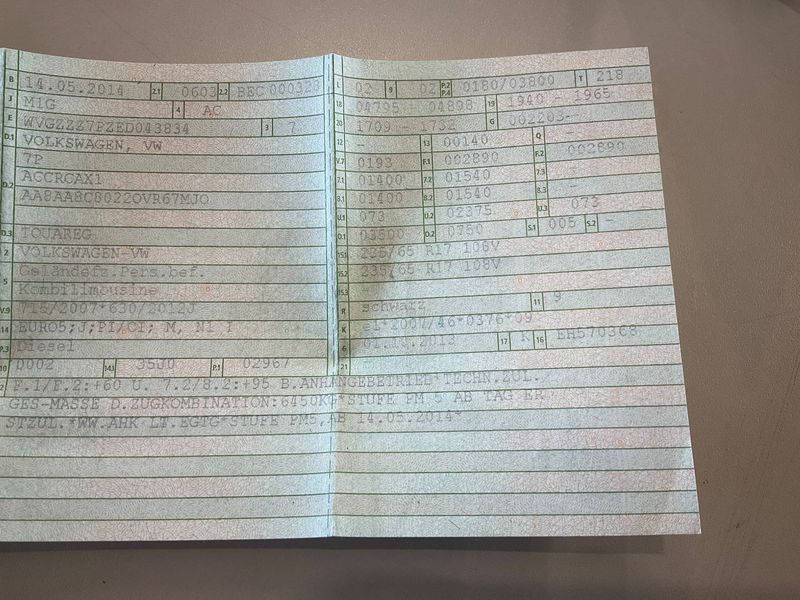 B 14.05.2014 2.1 0603 2.2 BEC000328
J M1G 4 AC
E WVGZZZ7PZED043834 3 7
D.1 VOLKSWAGEN, VW
7P
D.2 ACCRCAX1
AA8AA8C8022OVR67MJO
D.3 TOUAREG
2 VOLKSWAGEN-VW
5 Geländefz.Pers.bef.
Kombilimousine
V.9 715/2007*630/2012J
14 EURO5;J;PI/CI; M, N1 I
P.3 Diesel
10 0002 14.1 35J0 P.1 02967
L 02 9 02 P.2 P.4 0180/03800 T 218
18 04795 - 04898 19 1940 - 1965
20 1709 - 1732 G 002203-
12 - 13 00140 Q -
V.7 0193 F.1 002890 F.2 002890
7.1 01400 7.2 01540 7.3 -
8.1 01400 8.2 01540 8.3 -
U.1 073 U.2 02375 U.3 073
O.1 03500 O.2 0750 S.1 005 S.2 -
15.1 235/65 R17 108V
15.2 235/65 R17 108V
15.3 -
R schwarz 11 9
K e1*2007/46*0376*09
6 17 K 16 EH570368
21
F.1/F.2:+60 U. 7.2/8.2:+95 B.ANHÄNGEBETRIEB*TECHN.ZUL.
GES-MASSE D.ZUGKOMBINATION:6450KG*STUFE PM 5 AB TAG ER
STZUL.*WW.AHK LT.EGTG*STUFE PM5,AB 14.05.2014*